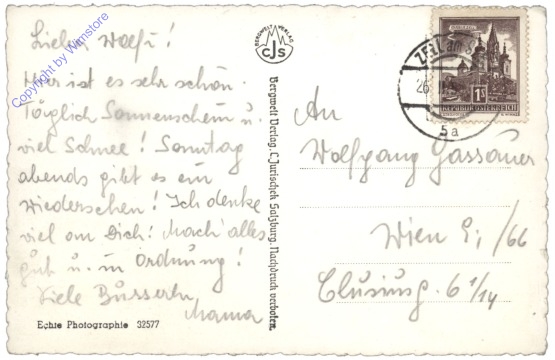 Lieber Wolfi!
Hier ist es sehr schön.
Täglich Sonnenschein u.
viel Schnee! Sonntag
abends gibt es ein
Wiedersehen! Ich denke
viel an Dich! Mach' alles
gut u. in Ordnung!
Viele Busserln
Mama
Echte Photographie 32577
Copyright by Wimstore
BERGWELT VERLAG
CJS
Bergwelt Verlag, C. Jurischek Salzburg. Nachdruck verboten.
ZELL am
26.
5a
1S
REPUBLIK ÖSTERREICH
An
Wolfgang Gassauer
Wien
/66
6 1/14